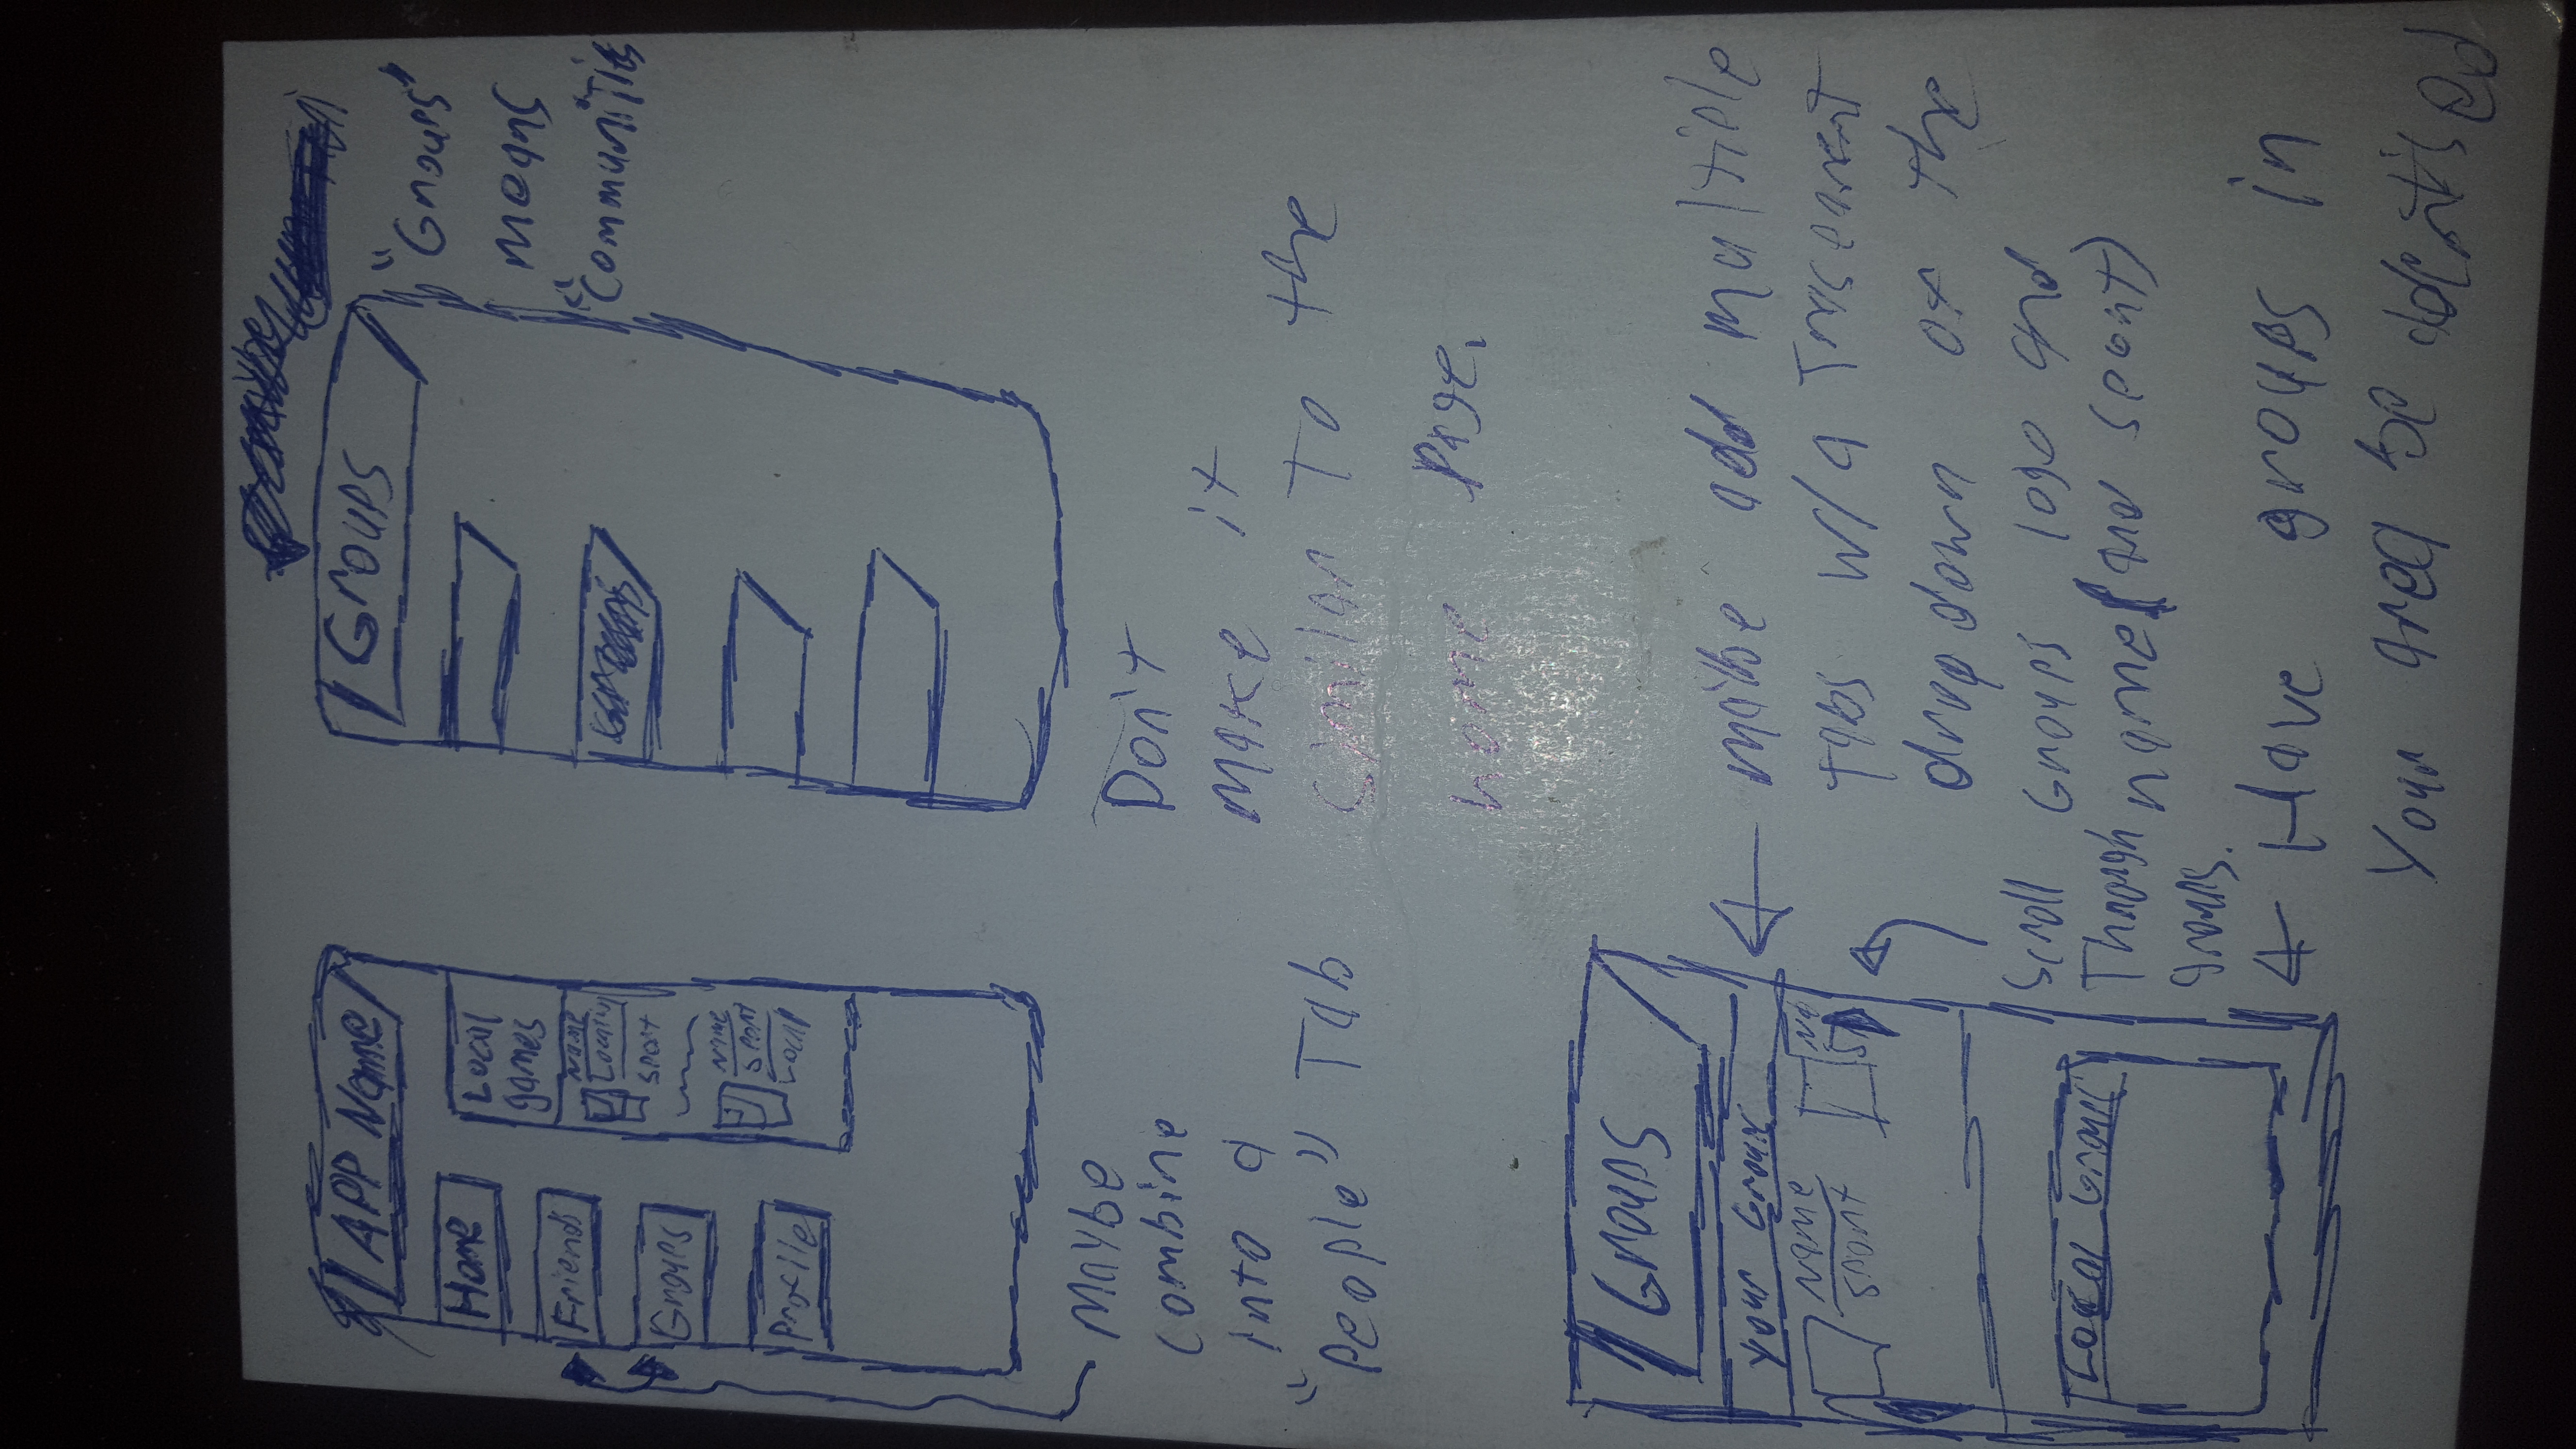 APP Name
Home
Friends
Groups
Profile
Local
games
Name
Location
Sport
Name
Sport
Local
Maybe
combine
into a
"People" Tab
Groups
"Groups"
means
"Communities
Don't
Make it
similar to the
home page.
Groups
Your Groups
Name
Sport
Na
Sp
Local Groups
maybe add multiple
tabs w/a Trasparent
dropdown of the
Groups logo and
name (and sport)
Scroll
Through
groups.
Have groups in
Your area be